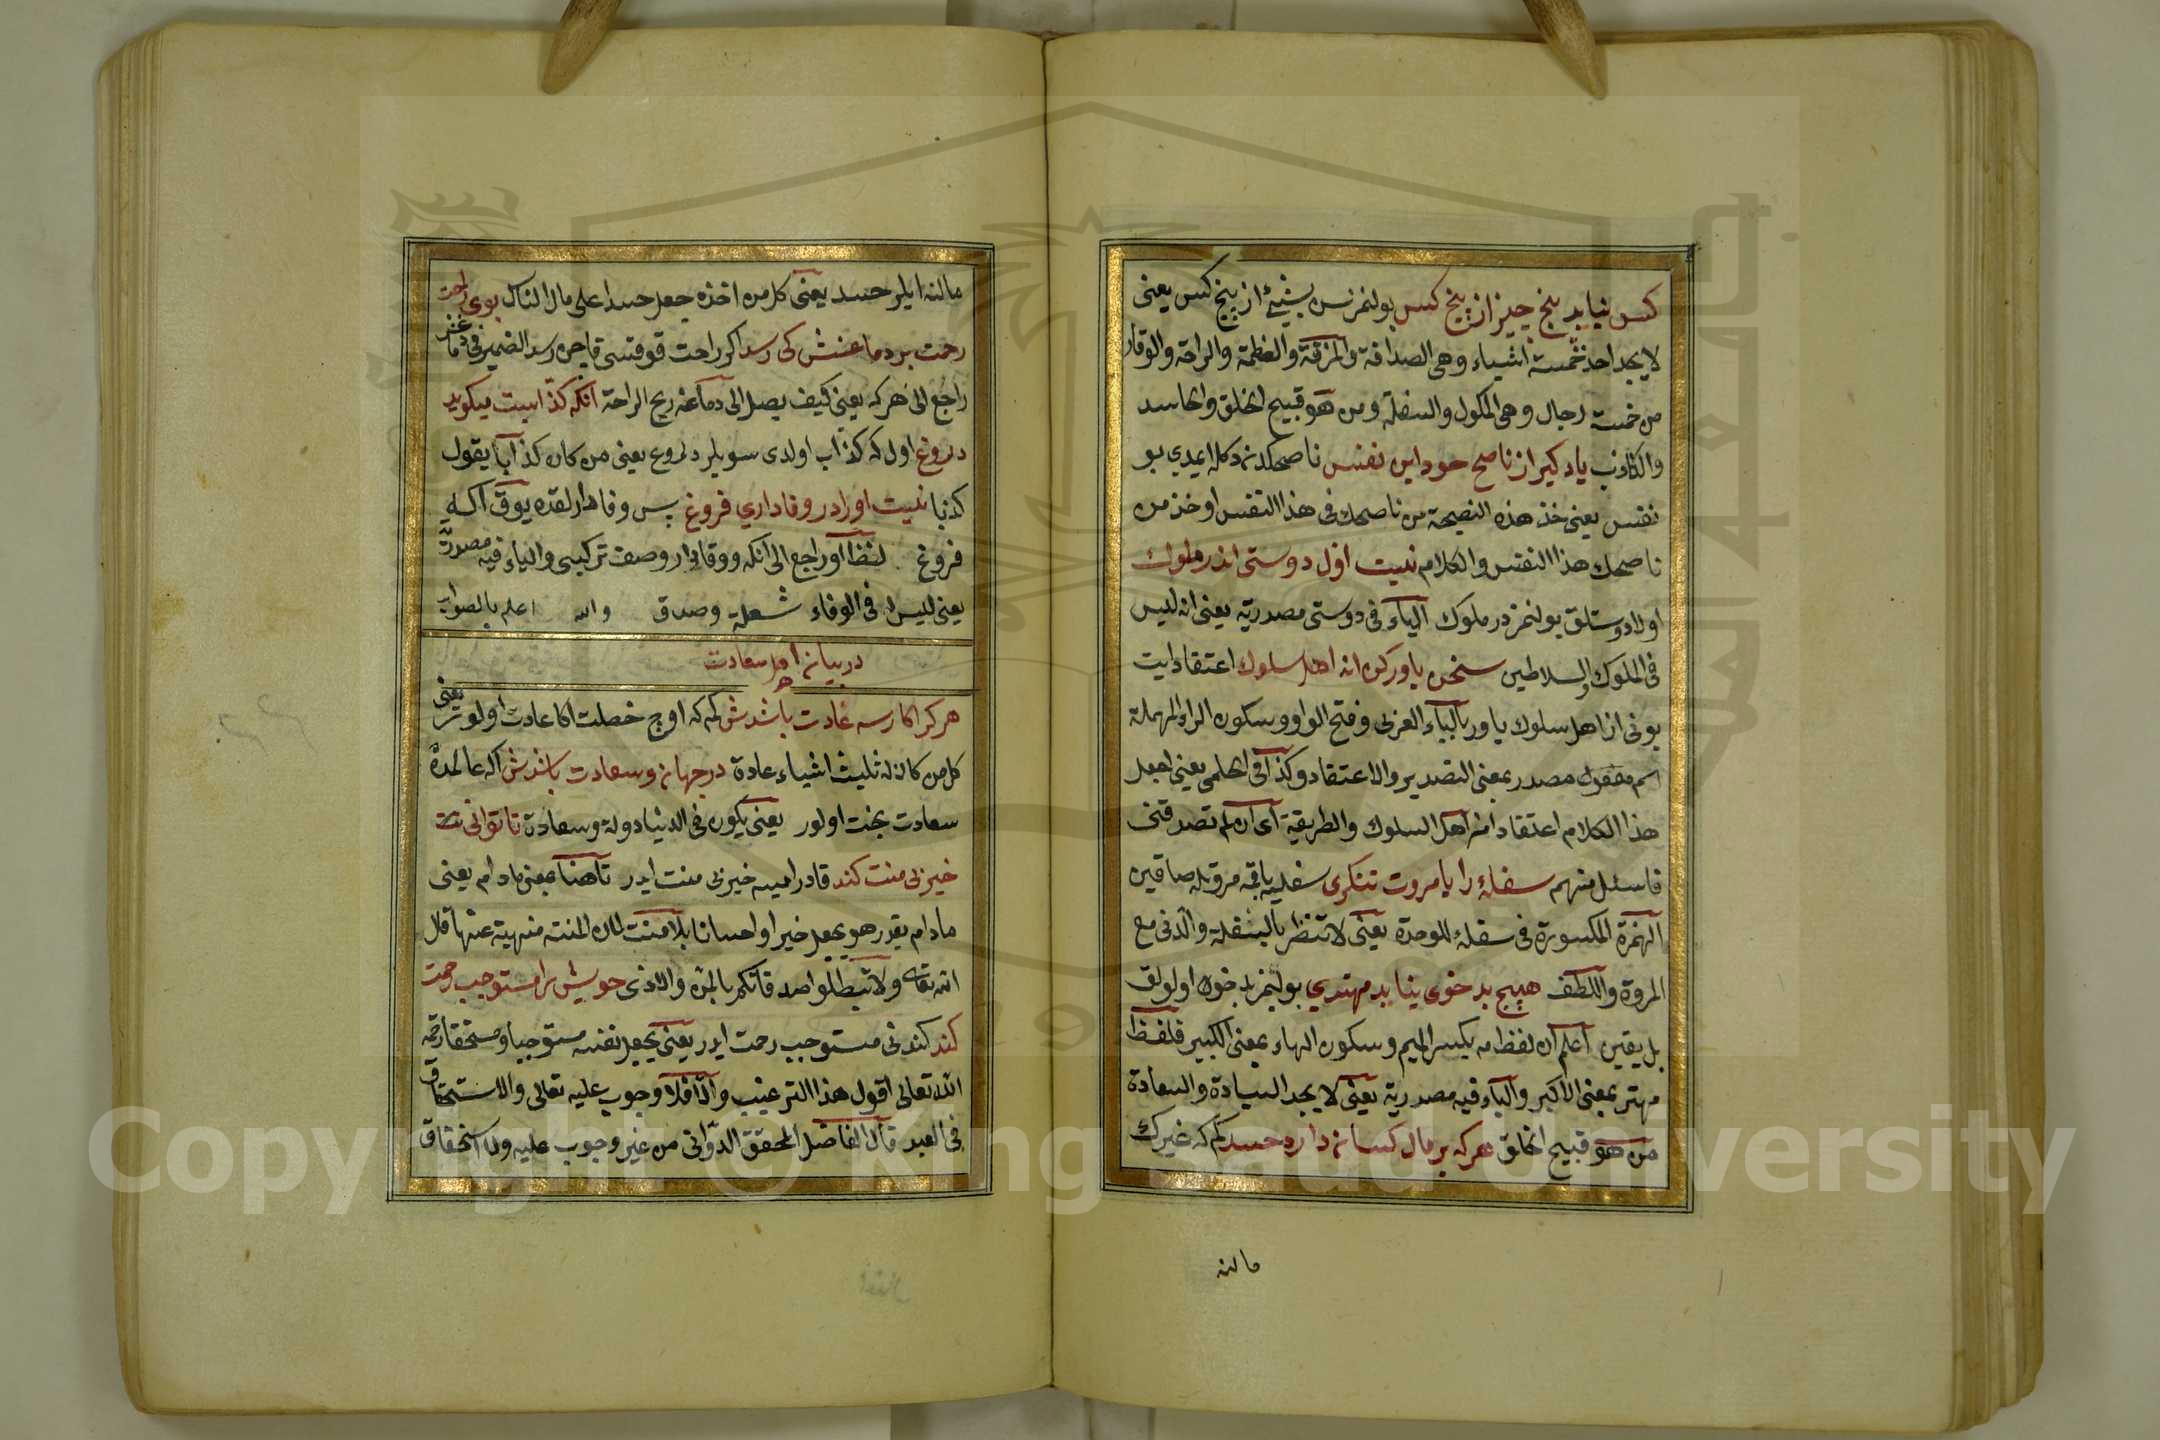 كس نيابد پنج چيز از پنج كس بولنمز نس بشيئ از پنج كس يعنى
لا يجد احد خمسة اشياء وهى الصداقة والمزقة والعظمة والراحة والوقار
من خمسة رجال وهى الملوك والسفلة ومن هو قبيح الخلق والحاسد
والكاذب ياد كير از ناصح خود اين نفس ناصحكدن دكله ايمدي بو
نفس يعنى خذ هذه النصيحة من ناصحك فى هذا النفس او خذ من
ناصحك هذا النفس والكلام نيست اول دوستى اندر ملوك
اولا دوستلق بولنمز در ملوك الياء فى دوستى مصدرية يعنى انه ليس
فى الملوك والسلاطين سخن باور كن از اهل سلوك اعتقاد ايت
بونى از اهل سلوك باور بالباء العربى وفتح الواو وسكون الراء المهملة
اسم مفعول مصدر بمعنى التصدير والاعتقاد وكذا فى الحلمى يعنى اجعل
هذا الكلام اعتقادا من اهل السلوك والطريقة اى ان لم تصدقنى
فاسئل منهم سفلۀ را با مروت ننكرى سفليه باقمه مروتله صاقين
الهمزة المكسورة فى سفلۀ للوحدة يعنى لا تنظر بالسفلة والدنى مع
المروة واللطف هيچ بد خوى نيابد مهتدي بولنمز بد خون اولولق
بل يقين اعلم ان لفظ مه بكسر الميم وسكون الهاء بمعنى الكبير فلفظ
مهتر بمعنى الاكبر والياء فيه مصدرية يعنى لا يجد السيادة والسعادة
من هو قبيح الخلق هركه بر مال كسان دارد حسد كم كه غيرك
مالنه
مالنه ايلر حسد يعنى كل من اخذه جعل حسدا على مال الناس بوى راحت
رحمت بر دماغش كى رسد اكر راحت قوقسى قاچن رسد الضمير فى دماغش
راجع الى هركه يعنى كيف يصل الى دماغه ريح الراحة آنكه كذابست ميكويد
دروغ اول كه كذاب اولدى سويلر دروغ يعنى من كان كذابا يقول
كذبا نيست او را در وفاداري فروغ پس وفادارلقده يوق اكه
فروغ لفظ او راجع الى آنكه ووفادار وصف تركيبى والياء فيه مصدرية
يعنى ليس له فى الوفاء شعلة وصدق والله اعلم بالصواب
در بيان اهل سعادت
هر كرا كار سه عادت باشدش كم كه اوچ خصلت اكا عادت اولور يعنى
كل من كان له ثليث اشياء عادة در جهان وسعادت باشدش اكه عالمده
سعادت بخت اولور يعنى يكون فى الدنيا دولة وسعادة تا توانى
خير بى منت كند قادر اميسه خير بى منت ايدر تا هنا بمعنى مادام يعنى
مادام يقدر هو يجعل خيرا او احسانا بلا منت لان المنته منهية عنها قال
الله تعالى ولا تبطلوا صدقاتكم بالمن والاذى خويش را مستوجب رحمت
كند كندنى مستوجب رحمت ايدر يعنى يجعل نفسه مستوجبا ومستحقا رحمة
الله تعالى اقول هذا الترغيب والا فلا وجوب عليه تعالى والاستحقاق
فى العبد قال الفاضل المحقق الدوانى من غير وجوب عليه ولا استحقاق
Copyright © King Saud University